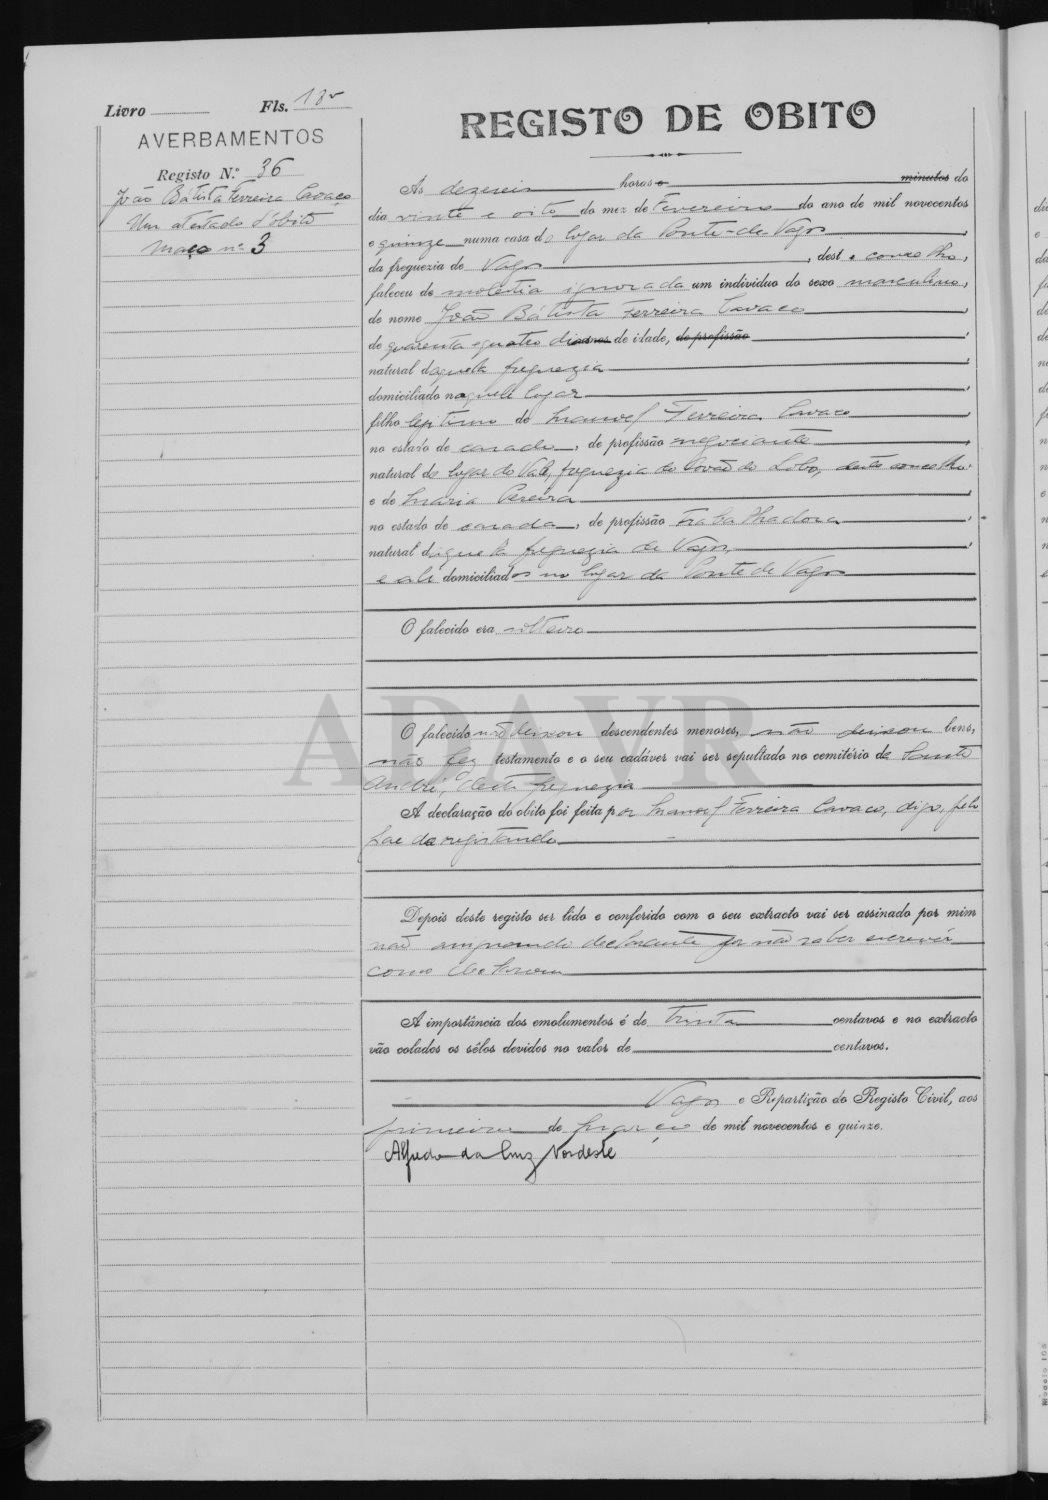 Livro Fls. 18v
AVERBAMENTOS
Registo N.º 36
João Bátista Ferreira Cavaco
Um atestado d'óbito
maço nº 3
REGISTO DE OBITO
Às dezeseis horas e minutos do
dia vinte e oito do mez de Fevereiro do ano de mil novecentos
e quinze numa casa do lugar da Ponte-de Vagos,
da freguezia de Vagos, deste concelho,
faleceu de molestia ignorada um individuo do sexo masculino,
de nome João Bátista Ferreira Cavaco,
de quarenta e quatro dias de idade, de profissão
natural daquela freguezia,
domiciliado naquele lugar,
filho legitimo de Manoel Ferreira Cavaco,
no estado de casado, de profissão negociante,
natural do lugar do Vale, freguezia de Covão do Lobo, deste concelho
e de Maria Pereira
no estado de casada, de profissão trabalhadora,
natural daquela freguezia de Vagos,
e ali domiciliados no lugar da Ponte de Vagos
O falecido era solteiro
O falecido não deixou descendentes menores, não deixou bens,
não fez testamento e o seu cadáver vai ser sepultado no cemitério de Santo
André, desta freguezia
A declaração do obito foi feita por Manoel Ferreira Cavaco, digo, pelo
pae do registando
Depois deste registo ser lido e conferido com o seu extracto vai ser assinado por mim
não assignando declarante por não saber escrever
como declarou
A importância dos emolumentos é de trinta centavos e no extracto
vão colados os sêlos devidos no valor de centavos.
Vagos e Repartição do Registo Civil, aos
primeiro de março de mil novecentos e quinze.
Alfredo da Cruz Nordeste
APAVR